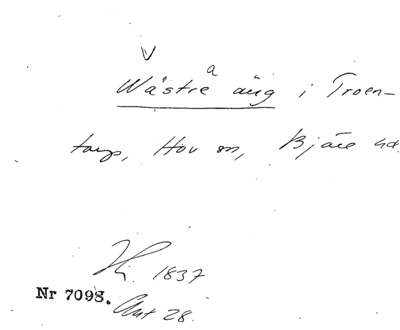 V
a
Wästre äng i Troen-
torp, Hov sn, Bjäre hd.
1837
Nr 7098. Akt 28.